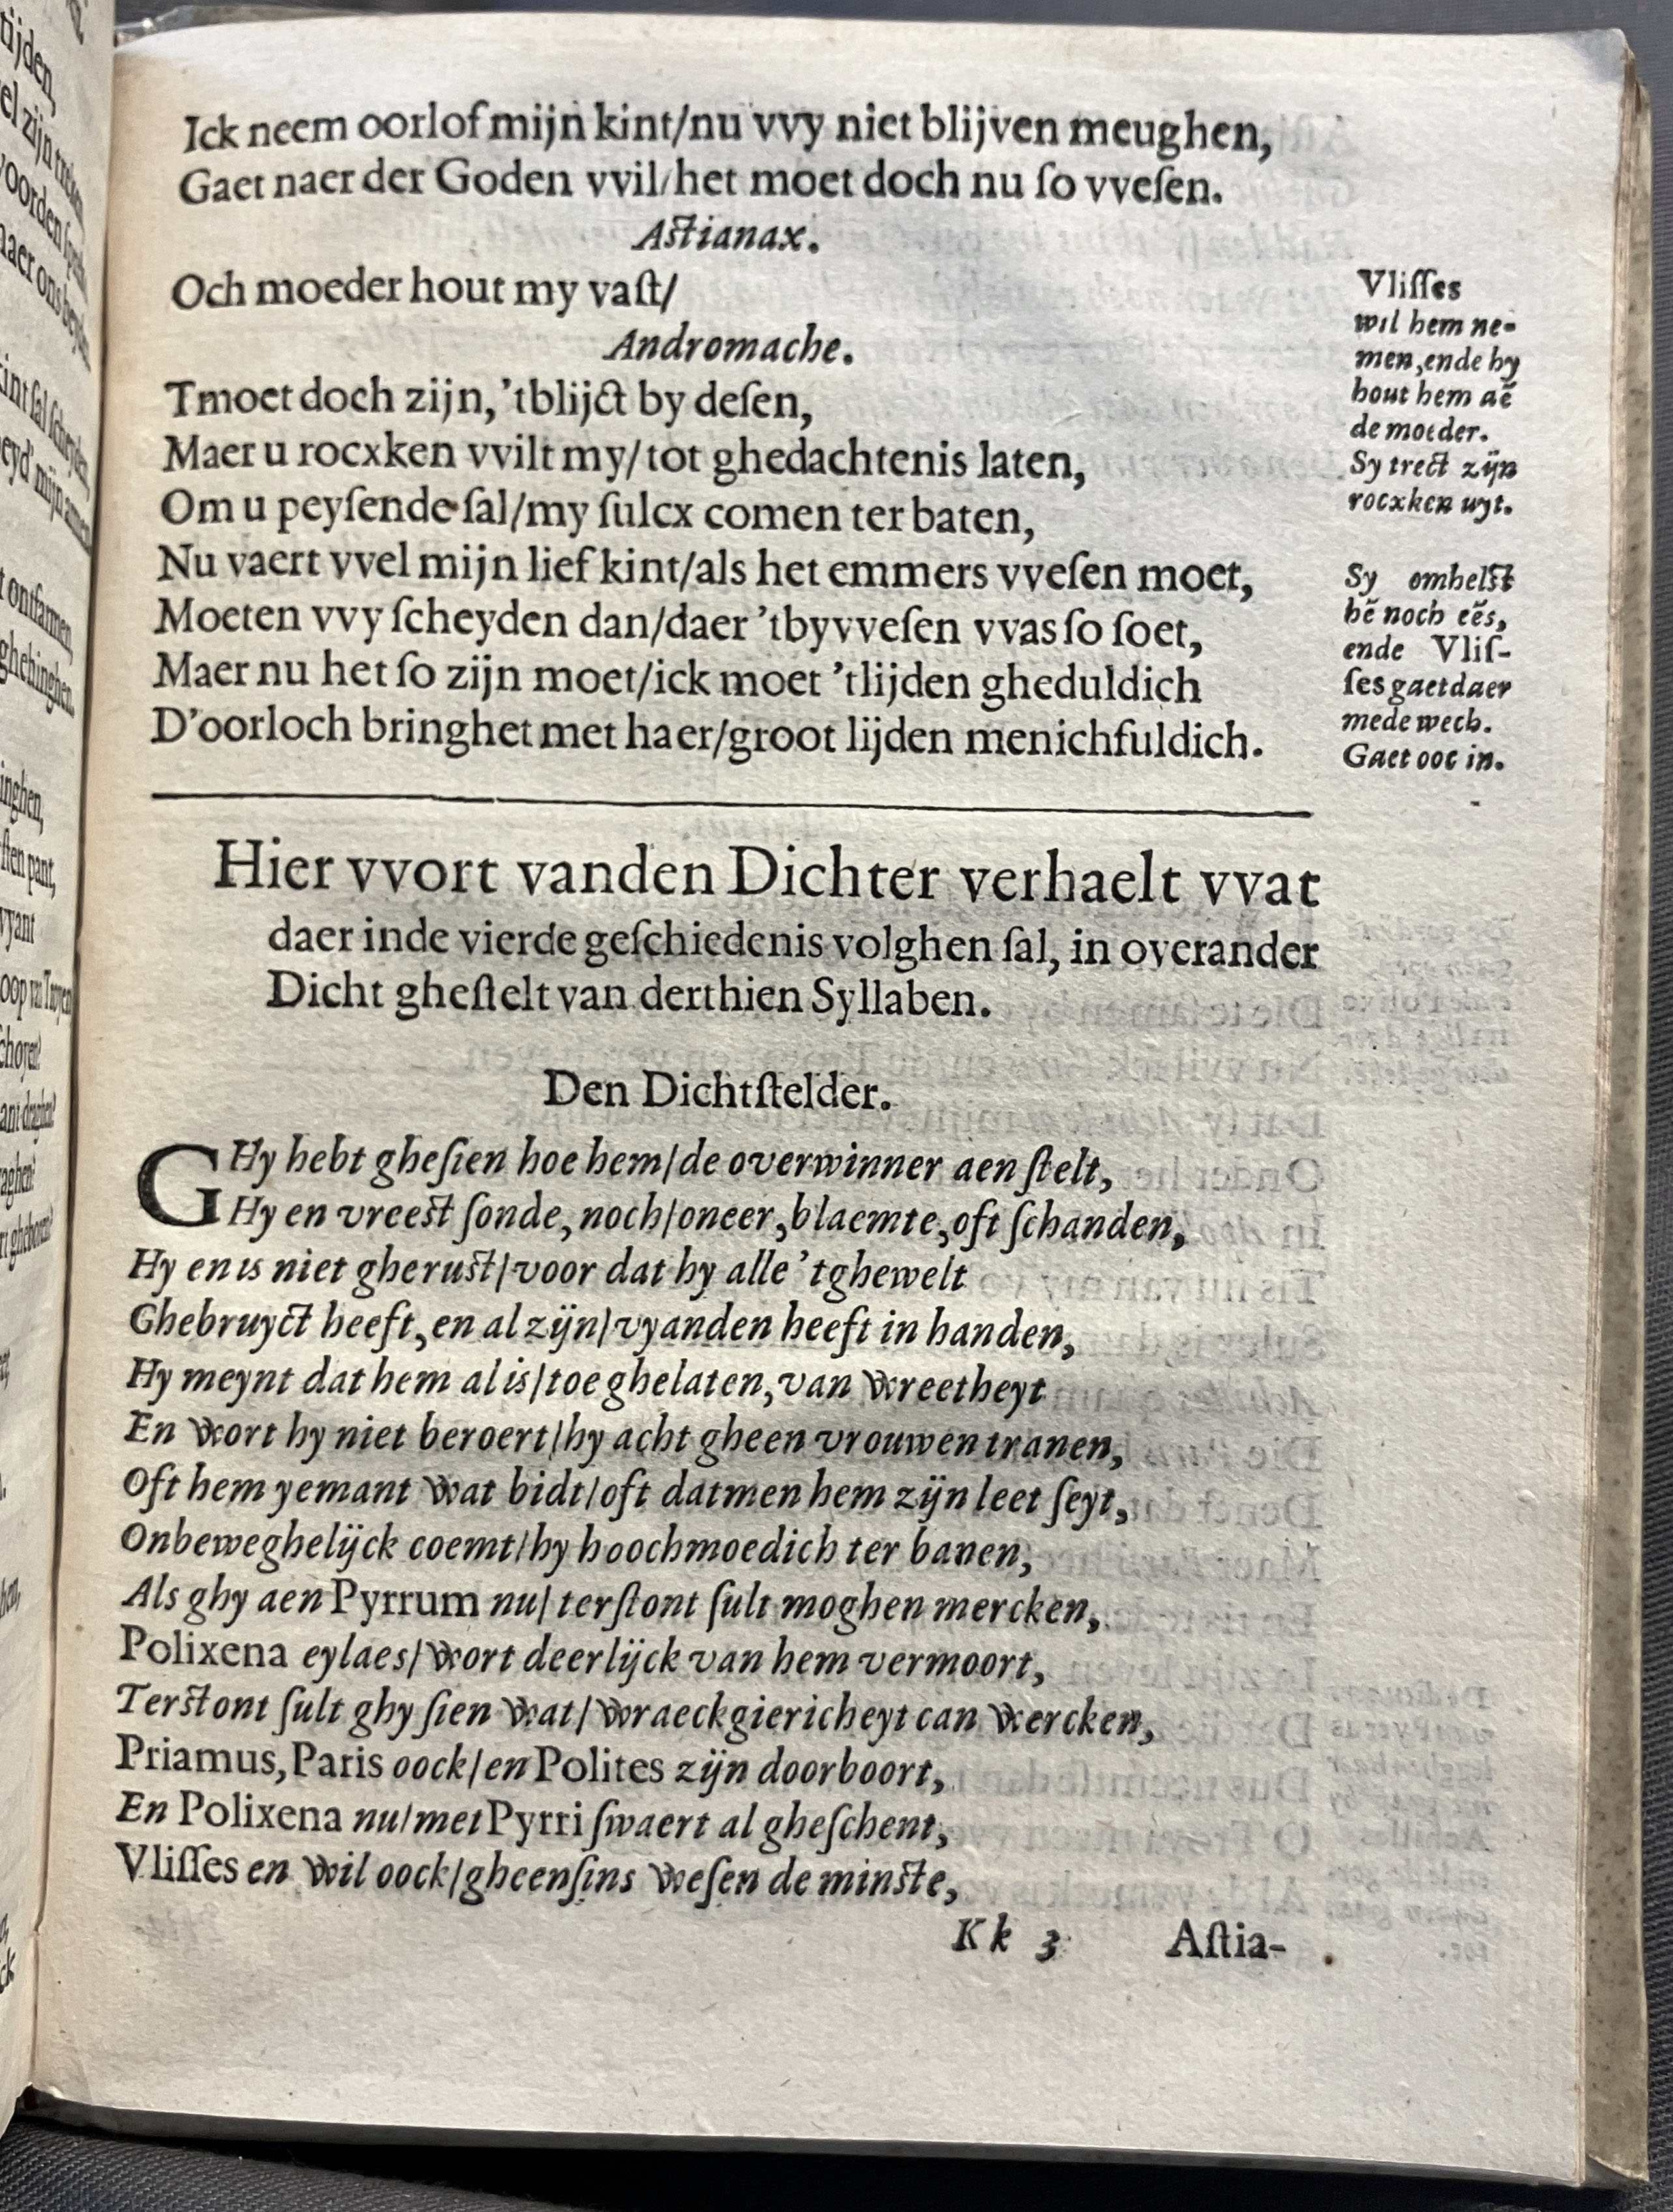 Ick neem oorlof mijn kint/nu vvy niet blijven meughen,
Gaet naer der Goden vvil/het moet doch nu ſo vveſen.
Aſtianax.
Och moeder hout my vaſt/
Andromache.
Tmoet doch zijn, ’tblijct by deſen,
Maer u rocxken vvilt my/tot ghedachtenis laten,
Om u peyſende ſal/my ſulcx comen ter baten,
Nu vaert vvel mijn lief kint/als het emmers vveſen moet,
Moeten vvy ſcheyden dan/daer ’tbyvveſen vvas ſo ſoet,
Maer nu het ſo zijn moet/ick moet ’tlijden gheduldich
D’oorloch bringhet met haer/groot lijden menichfuldich.
Vliſſes
wil hem ne-
men, ende hy
hout hem aẽ
de moeder.
Sy trect zijn
rocxken uyt.
Sy omhelſt
hẽ noch eẽs,
ende Vliſ-
ſes gaet daer
mede wech.
Gaet ooc in.
Hier vvort vanden Dichter verhaelt vvat
daer inde vierde geſchiedenis volghen ſal, in overander
Dicht gheſtelt van derthien Syllaben.
Den Dichtſtelder.
GHy hebt gheſien hoe hem/de overwinner aen ſtelt,
Hy en vreeſt ſonde, noch/oneer, blaemte, oft ſchanden,
Hy en is niet gheruſt/voor dat hy alle ’tghewelt
Ghebruyct heeft, en al zijn/vyanden heeft in handen,
Hy meynt dat hem al is/toe ghelaten, van wreetheyt
En wort hy niet beroert/hy acht gheen vrouwen tranen,
Oft hem yemant wat bidt/oft datmen hem zijn leet ſeyt,
Onbeweghelijck coemt/hy hoochmoedich ter banen,
Als ghy aen Pyrrum nu/terſtont ſult moghen mercken,
Polixena eylaes/wort deerlijck van hem vermoort,
Terſtont ſult ghy ſien wat/wraeckgiericheyt can wercken,
Priamus, Paris oock/en Polites zijn doorboort,
En Polixena nu/met Pyrri ſwaert al gheſchent,
Vliſſes en wil oock/gheenſins weſen de minſte,
Kk 3 Aſtia-